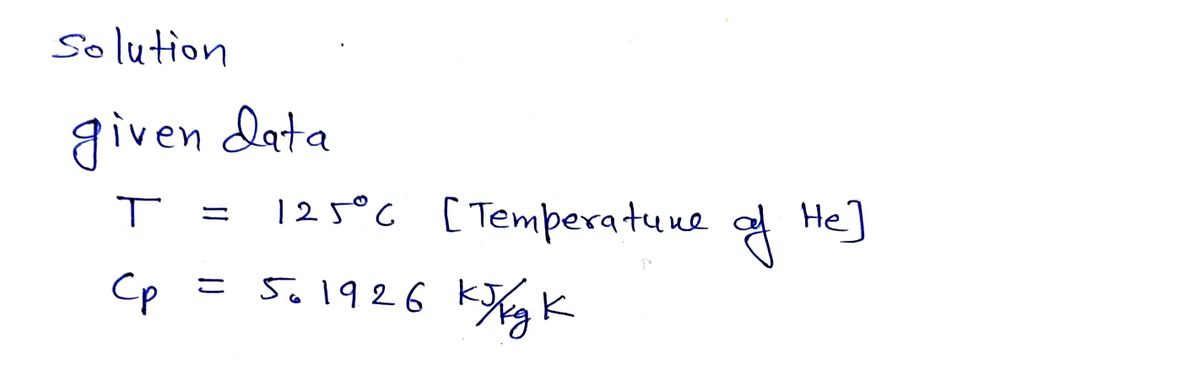 Solution
given data
T = 125°C [Temperature of He]
Cp = 5.1926 kJ/kg K